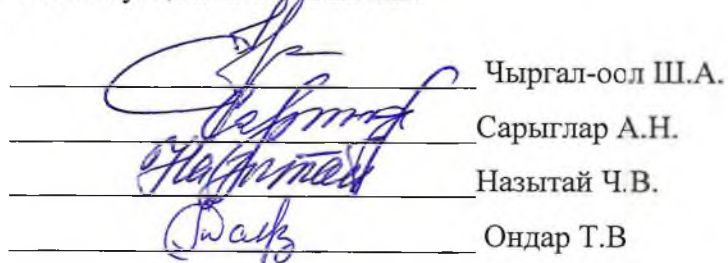 Чыргал-оол Ш.А.
Сарыглар А.Н.
Назытай Ч.В.
Ондар Т.В